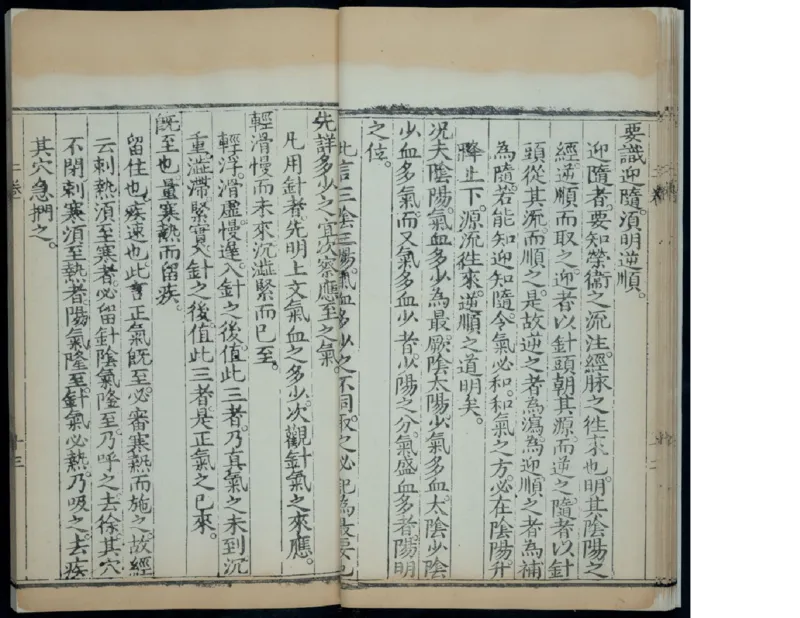 要識迎隨。須明逆順。
迎隨者。要知榮衛之流注。經脉之徃来也。明其陰陽之
經。逆順而取之。迎者以針頭朝其源。而逆之。隨者以針
頭從其流。而順之。是故逆之者為瀉為迎。順之者為補
為隨。若能知迎知隨。令氣必和。和氣之方。必在陰陽。升
降上下。源流徃來。逆順之道明矣。
况夫陰陽。氣血多少為最。厥陰太陽。少氣多血。太陰少陰
少血多氣。而又氣多血少者。少陽之分。氣盛血多者。陽明
之位。
此言三陰三陽。氣血多少之不同。取之必記為最要也
先詳多少之宜。次察應至之氣。
凡用針者。先明上文氣血之多少。次觀針氣之來應。
輕滑慢而未來。沉澁緊而已至。
輕浮。滑虛。慢遲。入針之後。值此三者。乃真氣之未到。沉
重。澁滯。緊實。入針之後。值此三者。是正氣之已來。
旣至也。量寒熱而留疾。
留住也。疾速也。此言正氣旣至。必審寒熱而施之。故經
云。刺熱須至寒者。必留針。陰氣隆至。乃呼之。去徐。其穴
不閉。刺寒須至熱者。陽氣隆至。針氣必熱。乃吸之。去疾
其穴急捫之。
二卷
十三